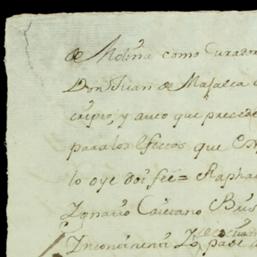 de Molina como Curador
Don Juan de Masalea
cripto, y auto que precede
para los efectos que
lo oye doi fée = Rapha
Ignacio Caietano
Incontinenti